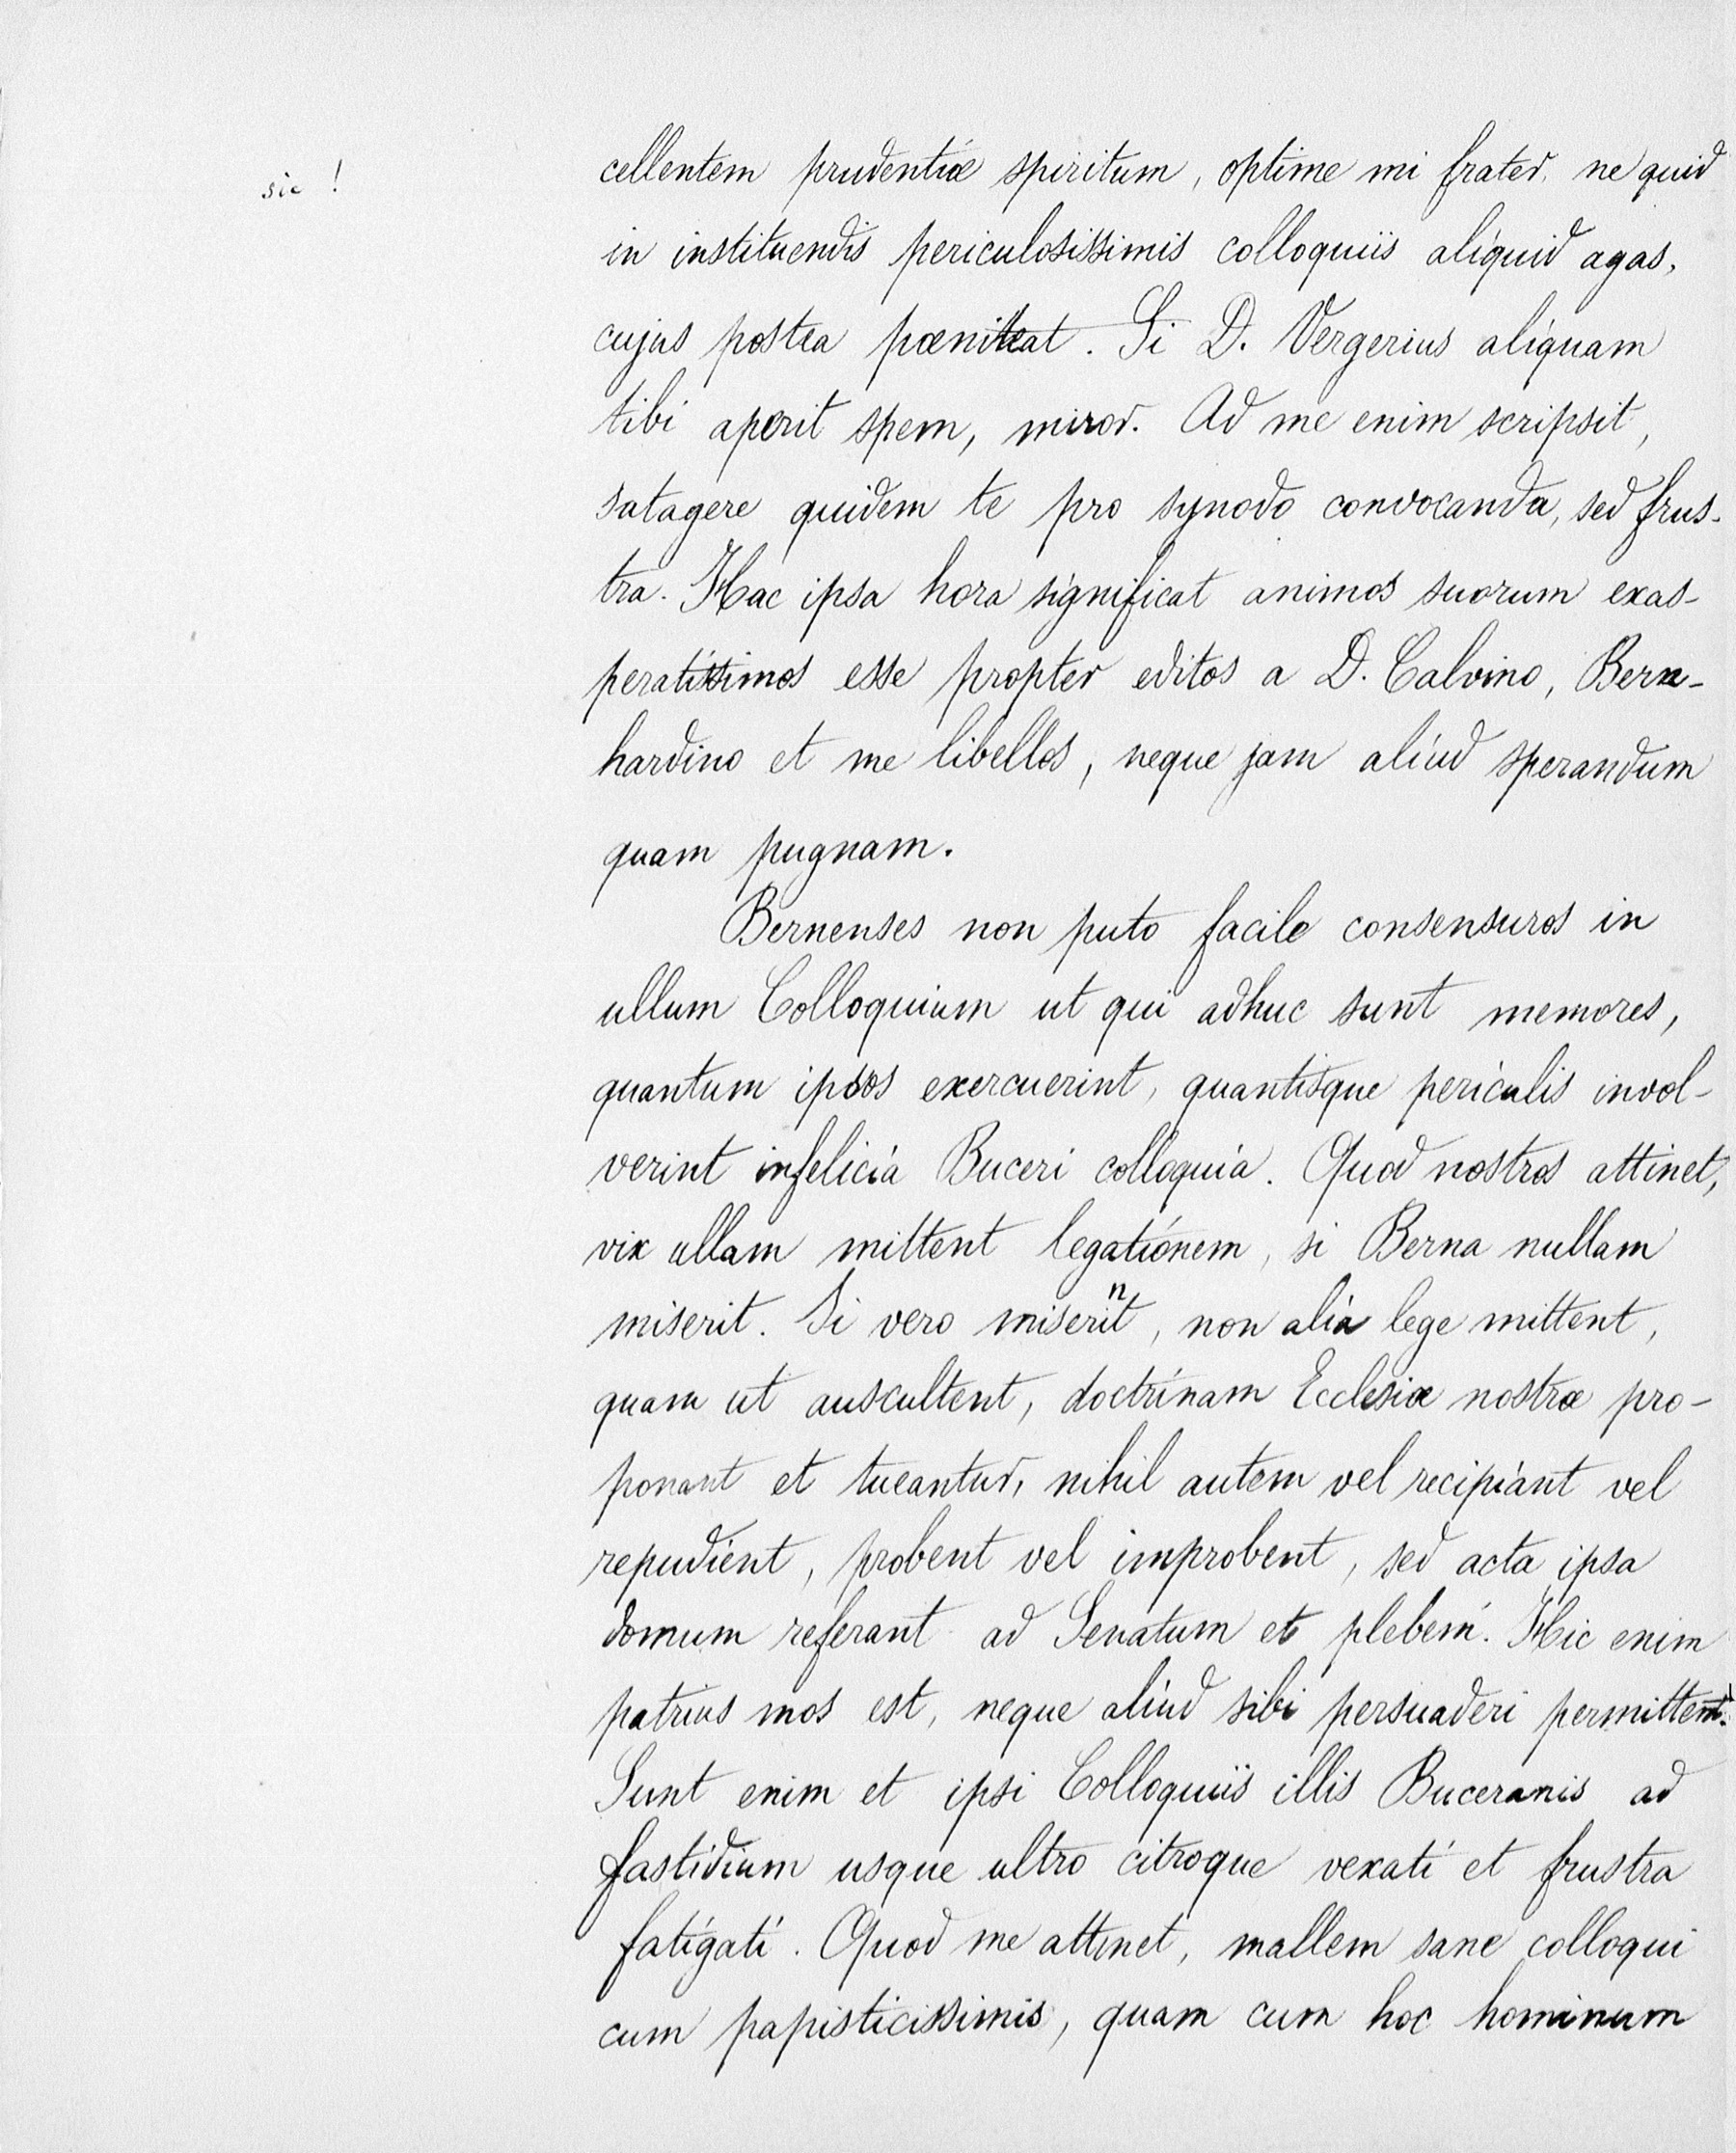 sic !
cellentem prudentiæ spiritum, optime mi frater, ne quid
in instituendis periculosissimis colloquiis aliquid agas,
cujus postea pœniteat. Si D. Vergerius aliquam
tibi aperit spem, miror. Ad me enim scripsit,
satagere quidem te pro synodo convocanda, sed frus-
tra. Hac ipsa hora significat animos suorum exas-
peratissimos esse propter editos a D. Calvino, Bern-
hardino et me libellos, neque jam aliud sperandum
quam pugnam.
Bernenses non puto facile consensuros in
ullum Colloquium ut qui adhuc sunt memores,
quantum ipsos exercuerint, quantisque periculis invol-
verint infelicia Buceri colloquia. Quod nostros attinet,
vix ullam mittent legationem, si Berna nullam
miserit. Si vero miserint, non alia lege mittent,
quam ut auscultent, doctrinam Ecclesiæ nostræ pro-
ponant et tueantur, nihil autem vel recipiant vel
repudient, probent vel improbent, sed acta ipsa
domum referant ad Senatum et plebem. Hic enim
patrius mos est, neque aliud sibi persuaderi permittent.
Sunt enim et ipsi Colloquiis illis Buceranis ad
fastidium usque ultro citroque vexati et frustra
fatigati. Quod me attinet, mallem sane colloqui
cum papisticissimis, quam cum hoc hominum